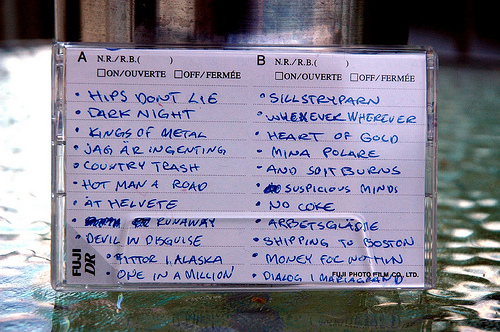 A N.R./R.B.( )
□ON/OUVERTE □OFF/FERMÉE
• HIPS DONT LIE
• DARK NIGHT
• KINGS OF METAL
• JAG ÄR INGENTING
• COUNTRY TRASH
• HOT MAN A ROAD
• ÅT HELVETE
• RUNAWAY
• DEVIL IN DISGUISE
• RITTOR I ALASKA
• ONE IN A MILLION
FUJI DR
B N.R./R.B.( )
□ON/OUVERTE □OFF/FERMÉE
• SILLSTRYPARN
• WHENEVER WHEREVER
• HEART OF GOLD
• MINA POLARE
• AND SO IT BURNS
• SUSPICIOUS MINDS
• NO COKE
• ARBETSGLÄDJE
• SHIPPING TO BOSTON
• MONEY FOR NOTHIN
• DIALOG I MARIAGRAND
FUJI PHOTO FILM CO., LTD.